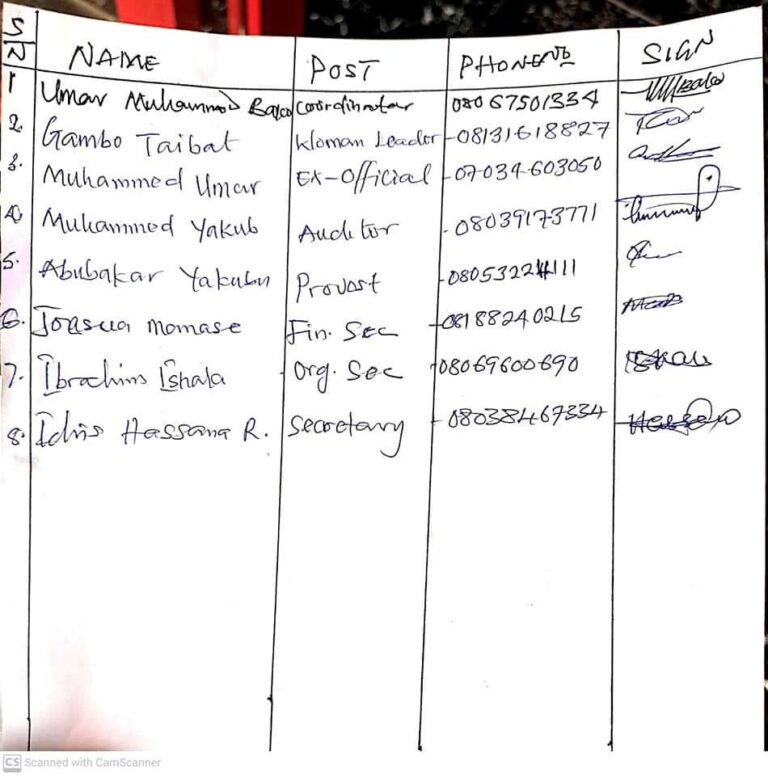 S/N NAME POST PHONE NO SIGN
1 Umar Muhammod Bako Coordinator 08067501334
2. Gambo Taibat Woman Leader - 08131618827
3. Muhammed Umar EX-Official - 07034603050
4. Muhammed Yakub Auditor - 08039173771
5. Abubakar Yakubu Provost - 08053224111
6. Joasua momase Fin. Sec - 08188240215
7. Ibrahim Ishala Org. Sec - 08069600690
8. Idris Hassana R. Secretary - 08038467334
CS Scanned with CamScanner